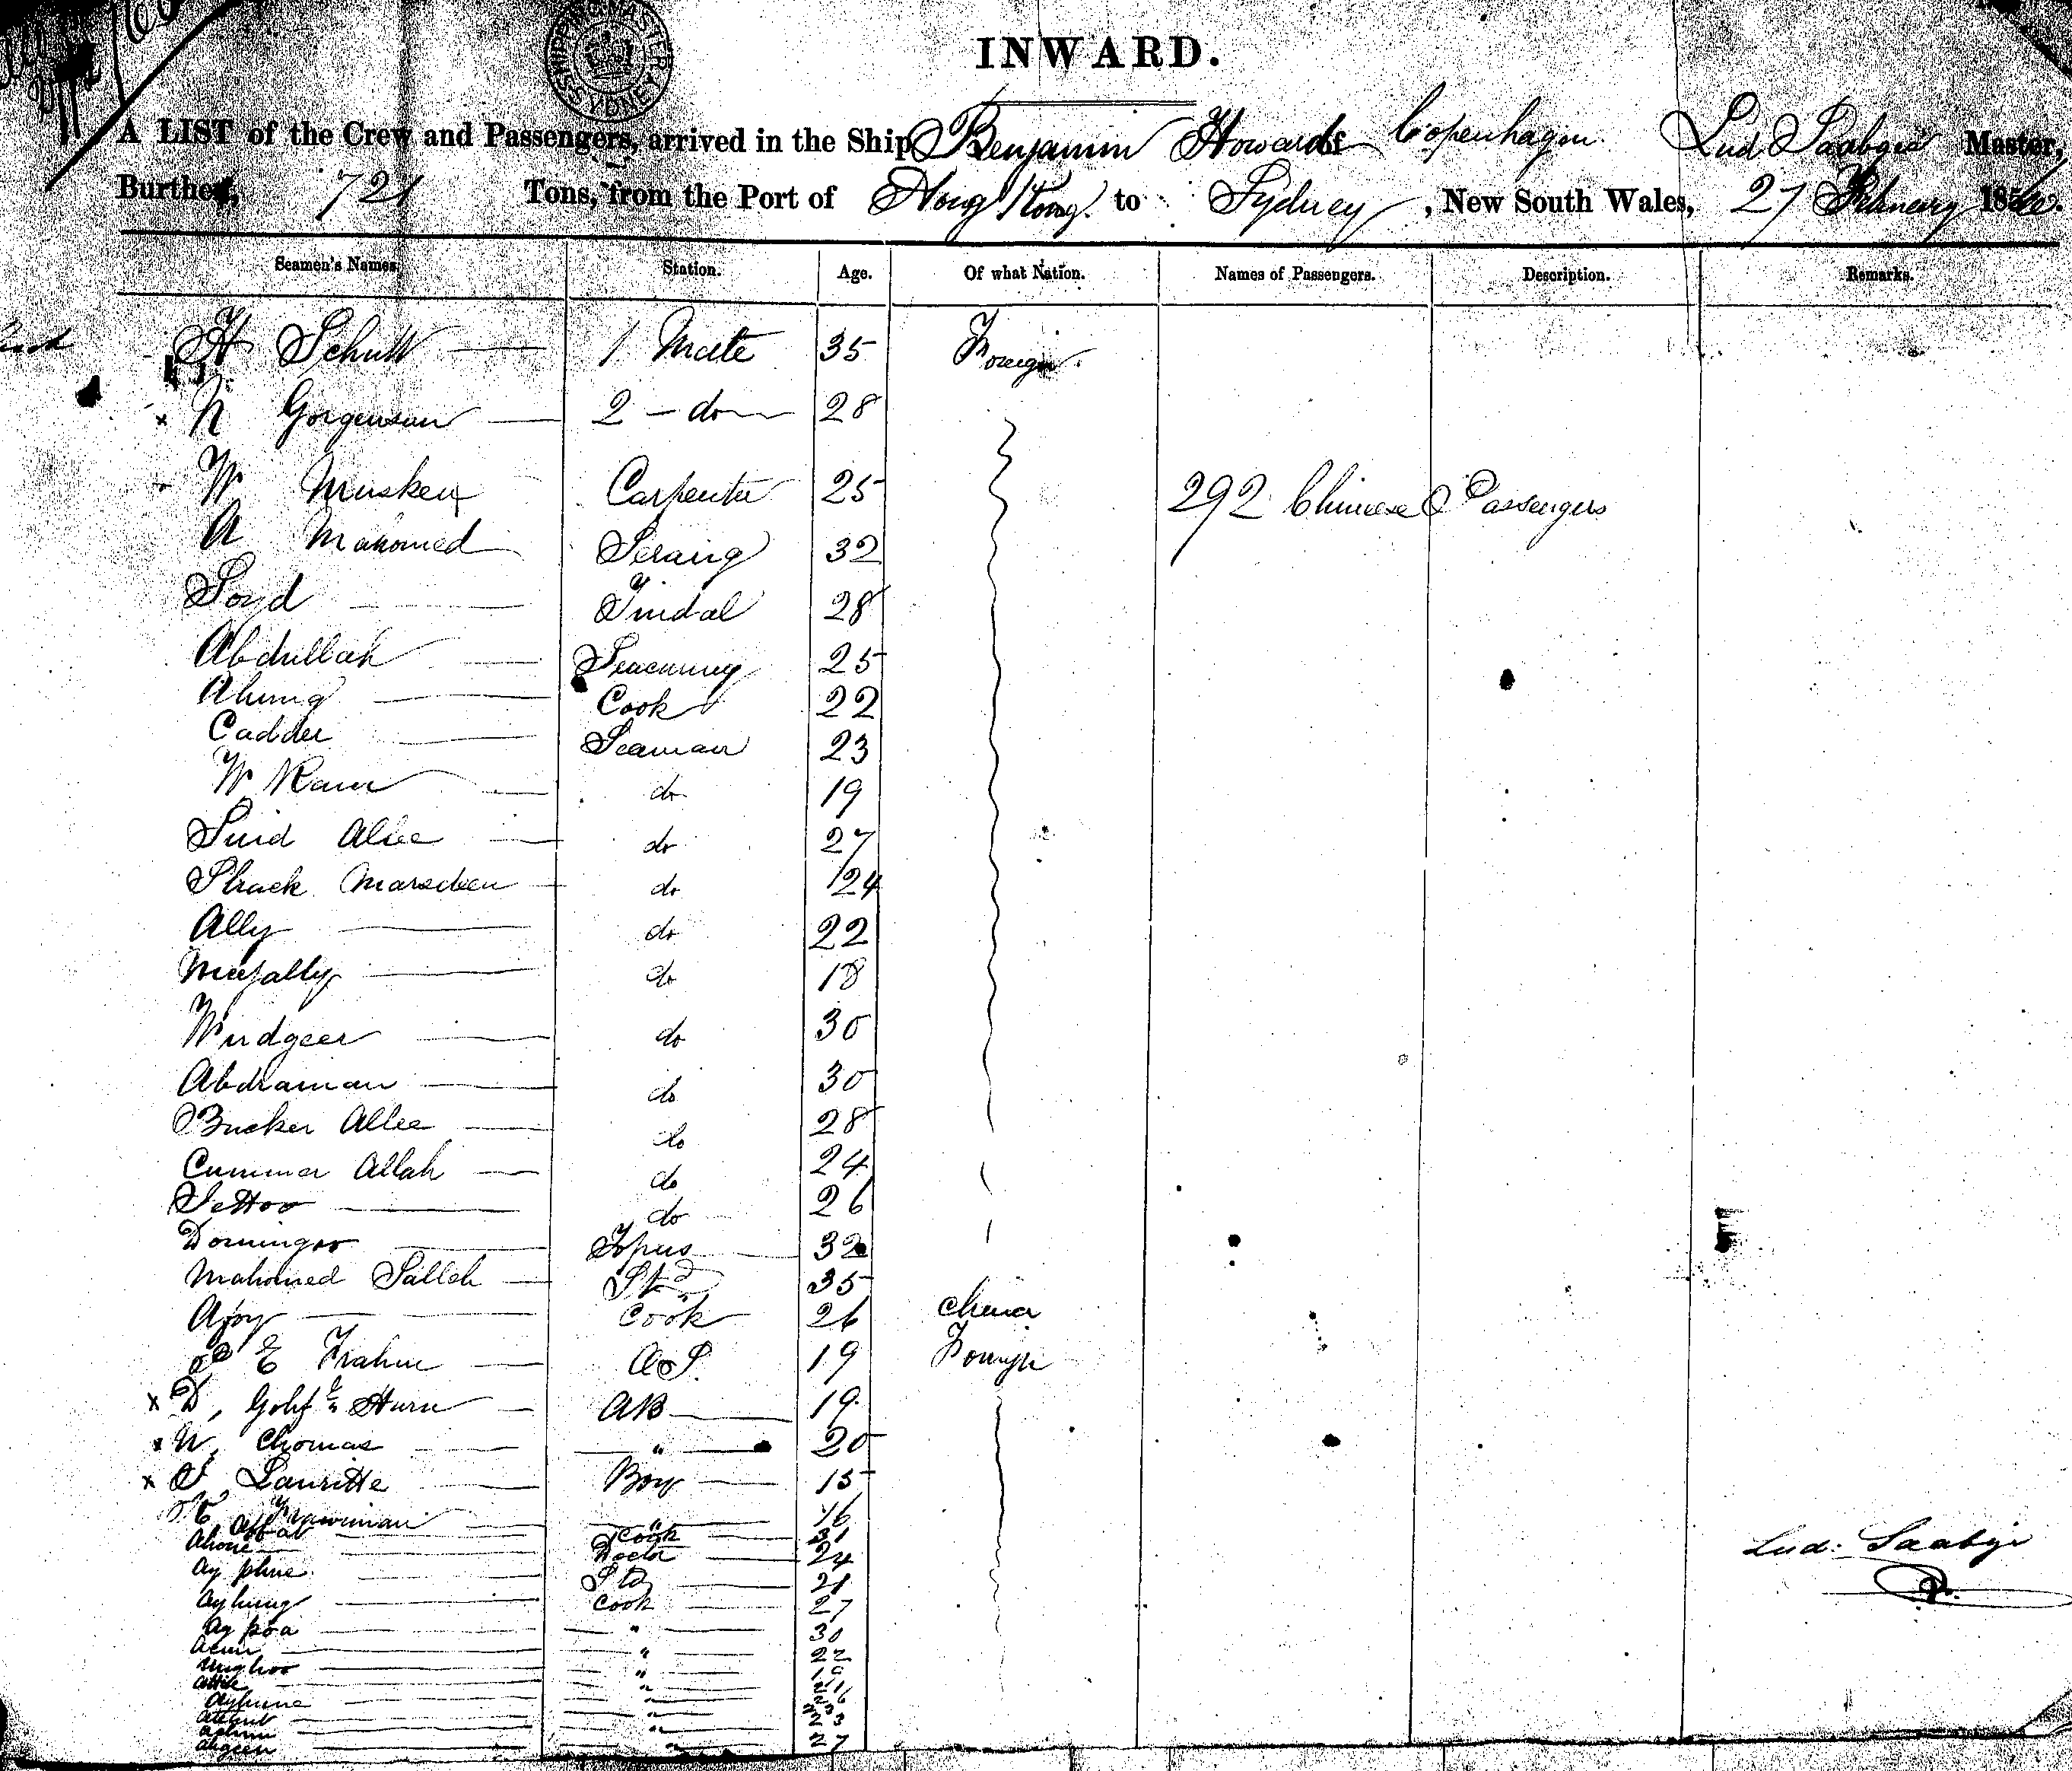 SHIPPING MASTER SYDNEY
INWARD.
A LIST of the Crew and Passengers, arrived in the Ship Benjamin Howard of Copenhagen Lud Saabye Master,
Burthen, 721 Tons, from the Port of Hong Kong to Sydney, New South Wales, 27 February 1860.
Seamen's Names. Station. Age. Of what Nation. Names of Passengers. Description. Remarks.
H Schutt 1 Mate 35 Foreign
N Gorgensen 2 - do 28
W Musken Carpenter 25 292 Chinese Passengers
A Mahomed Serang 32
Soyd Tindal 28
Abdullah Seacunny 25
Ahung Cook 22
Cadder Seaman 23
W Ram do 19
Suid Alie do 27
Shack Marsdeen do 24
Ally do 22
do 18
Wudgeer do 30
Abdraman do 30
Bucker Allee do 28
Cummer Allah do 24
Settoo do 26
Domingoo Topus 32
Mahomed Salleh Std 35
Ajoy Cook 26 China
E Frahm O.S. 19 Foreign
x D, AB 19
x N, Thomas " 20
x Lauritte Boy 15
" 16
Cook 31
Ahone Doctor 24
Ay phue Std 21
Ayhung Cook 27
Ay poa " 30
" 22
" 19
"
Ayhune "
" 23
" 27
Lud: Saabye